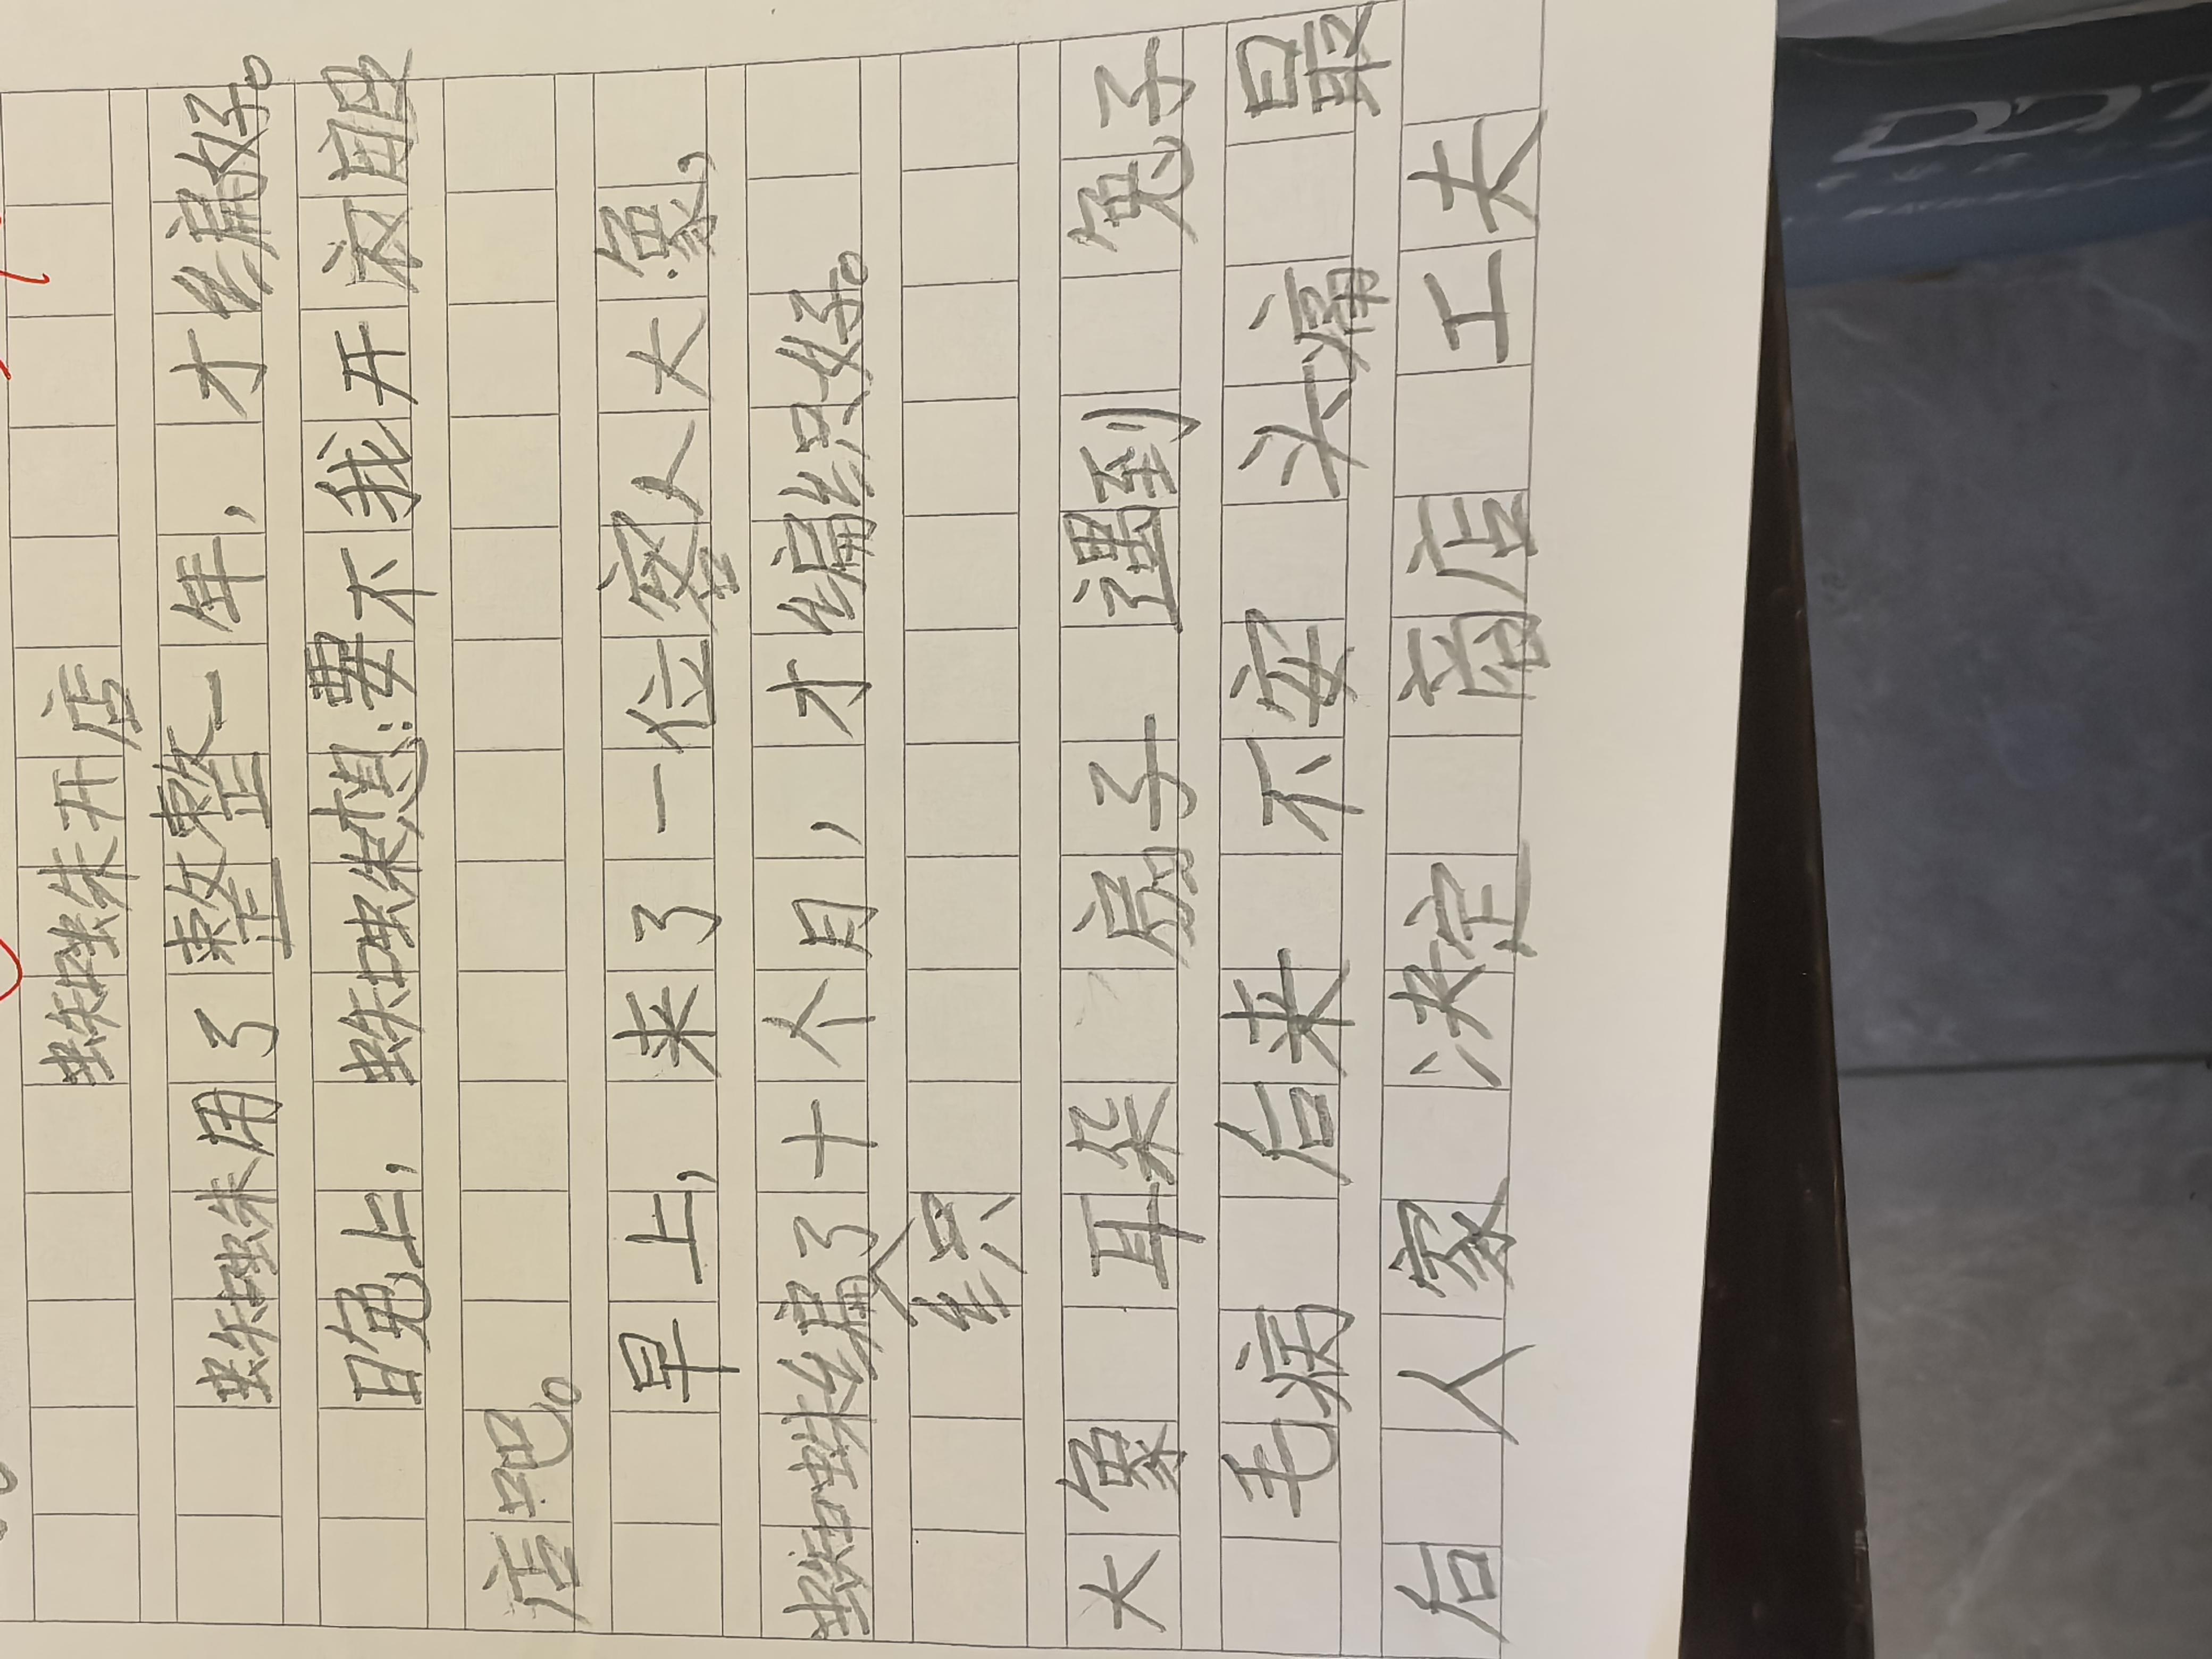 蜘蛛开店
蜘蛛用了整整一年，才编好。
晚上，蜘蛛想：要不我开
店吧。
早上，来了一位客人大象，
蜘蛛编了十个月，才编织好。
织
大象 耳朵 扇子 遇到 兔子
毛病 后来 不安 头痛 最
后 人家 决定 商店 工夫